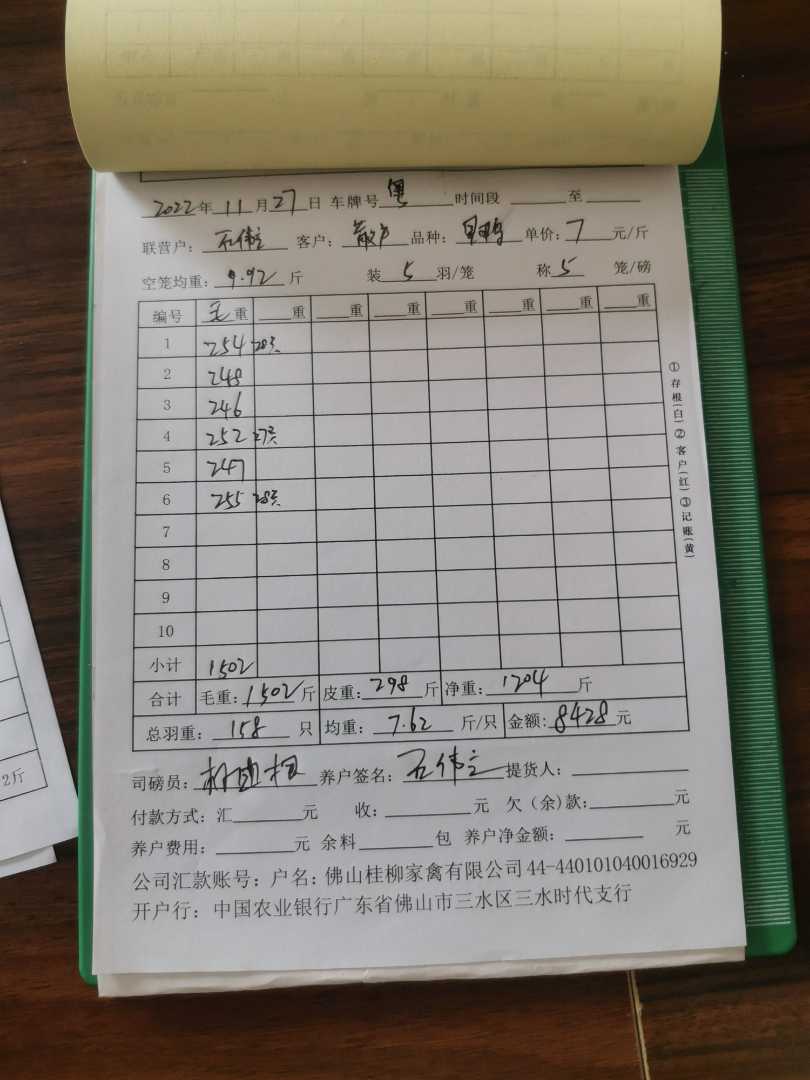 2022年11月27日 车牌号 粤 时间段 至
联营户: 石伟立 客户: 散户 品种: 单价: 7 元/斤
空笼均重: 9.92 斤 装 5 羽/笼 称 5 笼/磅
编号 毛重 重 重 重 重 重 重 重
1 254 28只
2 248
3 246
4 252 27只
5 247
6 255 28只
7
8
9
10
小计 1502
合计 毛重: 1502 斤 皮重: 298 斤 净重: 1204 斤
总羽重: 158 只 均重: 7.62 斤/只 金额: 8428 元
司磅员: 养户签名: 石伟立 提货人:
付款方式: 汇 元 收: 元 欠(余)款: 元
养户费用: 元 余料 包 养户净金额: 元
公司汇款账号: 户名: 佛山桂柳家禽有限公司 44-440101040016929
开户行: 中国农业银行广东省佛山市三水区三水时代支行
①存根(白)②客户(红)③记账(黄)
2斤